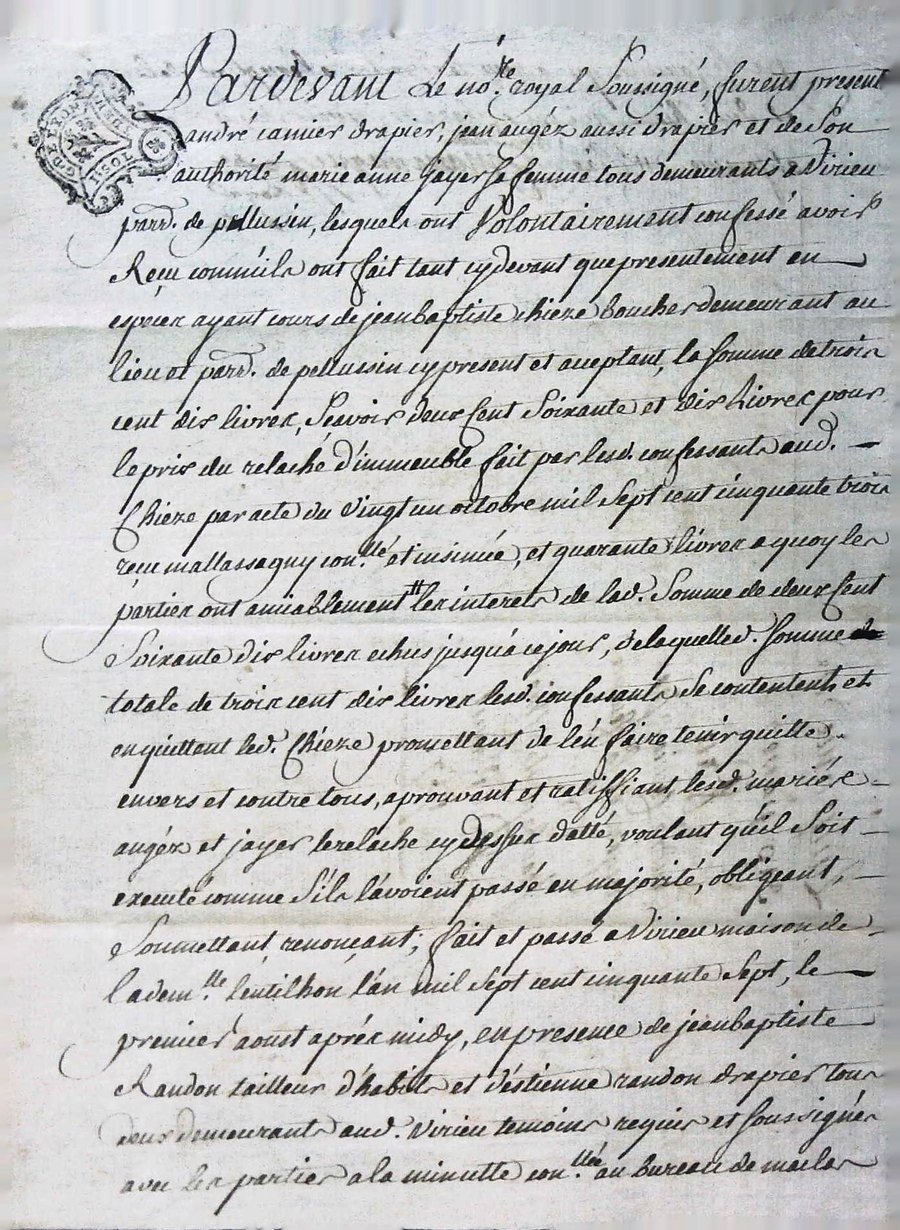 Pardevant Le no.re royal Soussigné, furent present
andré camier drapier, jean augéz aussi drapier et de Son
authorité marie anne jayer sa femme tous demeurants a Virieu
parr. de pellussin, lesquels ont Volontairement confessé avoir
Reçu comm'ils ont fait tant cydevant que presentement en
especes ayant cours de jean baptiste chieze boucher demeurant au
lieu et parr. de pellussin cy present et acceptant, la somme de trois
cent dix livres, Scavoir deux Cent Soixante et dix Livres pour
le prix du relaché d'immeuble fait par lesd. confessants aud.
Chieze par acte du Vingt un octobre mil Sept cent cinquante trois
reçu mallassagny con.llé et insinué, et quarante livres a quoy les
parties ont amiablement les interets de lad. Somme de deux Cent
Soixante dix livres echus jusqu'a ce jour, de laquelle d. Somme
totale de trois cent dix livres lesd. confessants Se contentent, et
en quittent led. Chieze promettant de l'en faire tenir quitte
envers et contre tous, aprouvant et ratiffiant lesd. mariés
augéz et jayer le relaché cy dessus datté, voulant qu'il Soit
executé comme S'ils l'avoient passé en majorité, obligeant,
Soumettant, renonçant; fait et passé a Virieu maison de
la dem.lle lentilhon l'an mil Sept cent cinquante Sept, le
premier aoust aprés midy, en presence de jean baptiste
Randon tailleur d'habits et d'éstienne randon drapier tous
deux demeurants aud. Virieu temoins requis et soussignés
avec les parties a la minutte con.llée au bureau de maclas